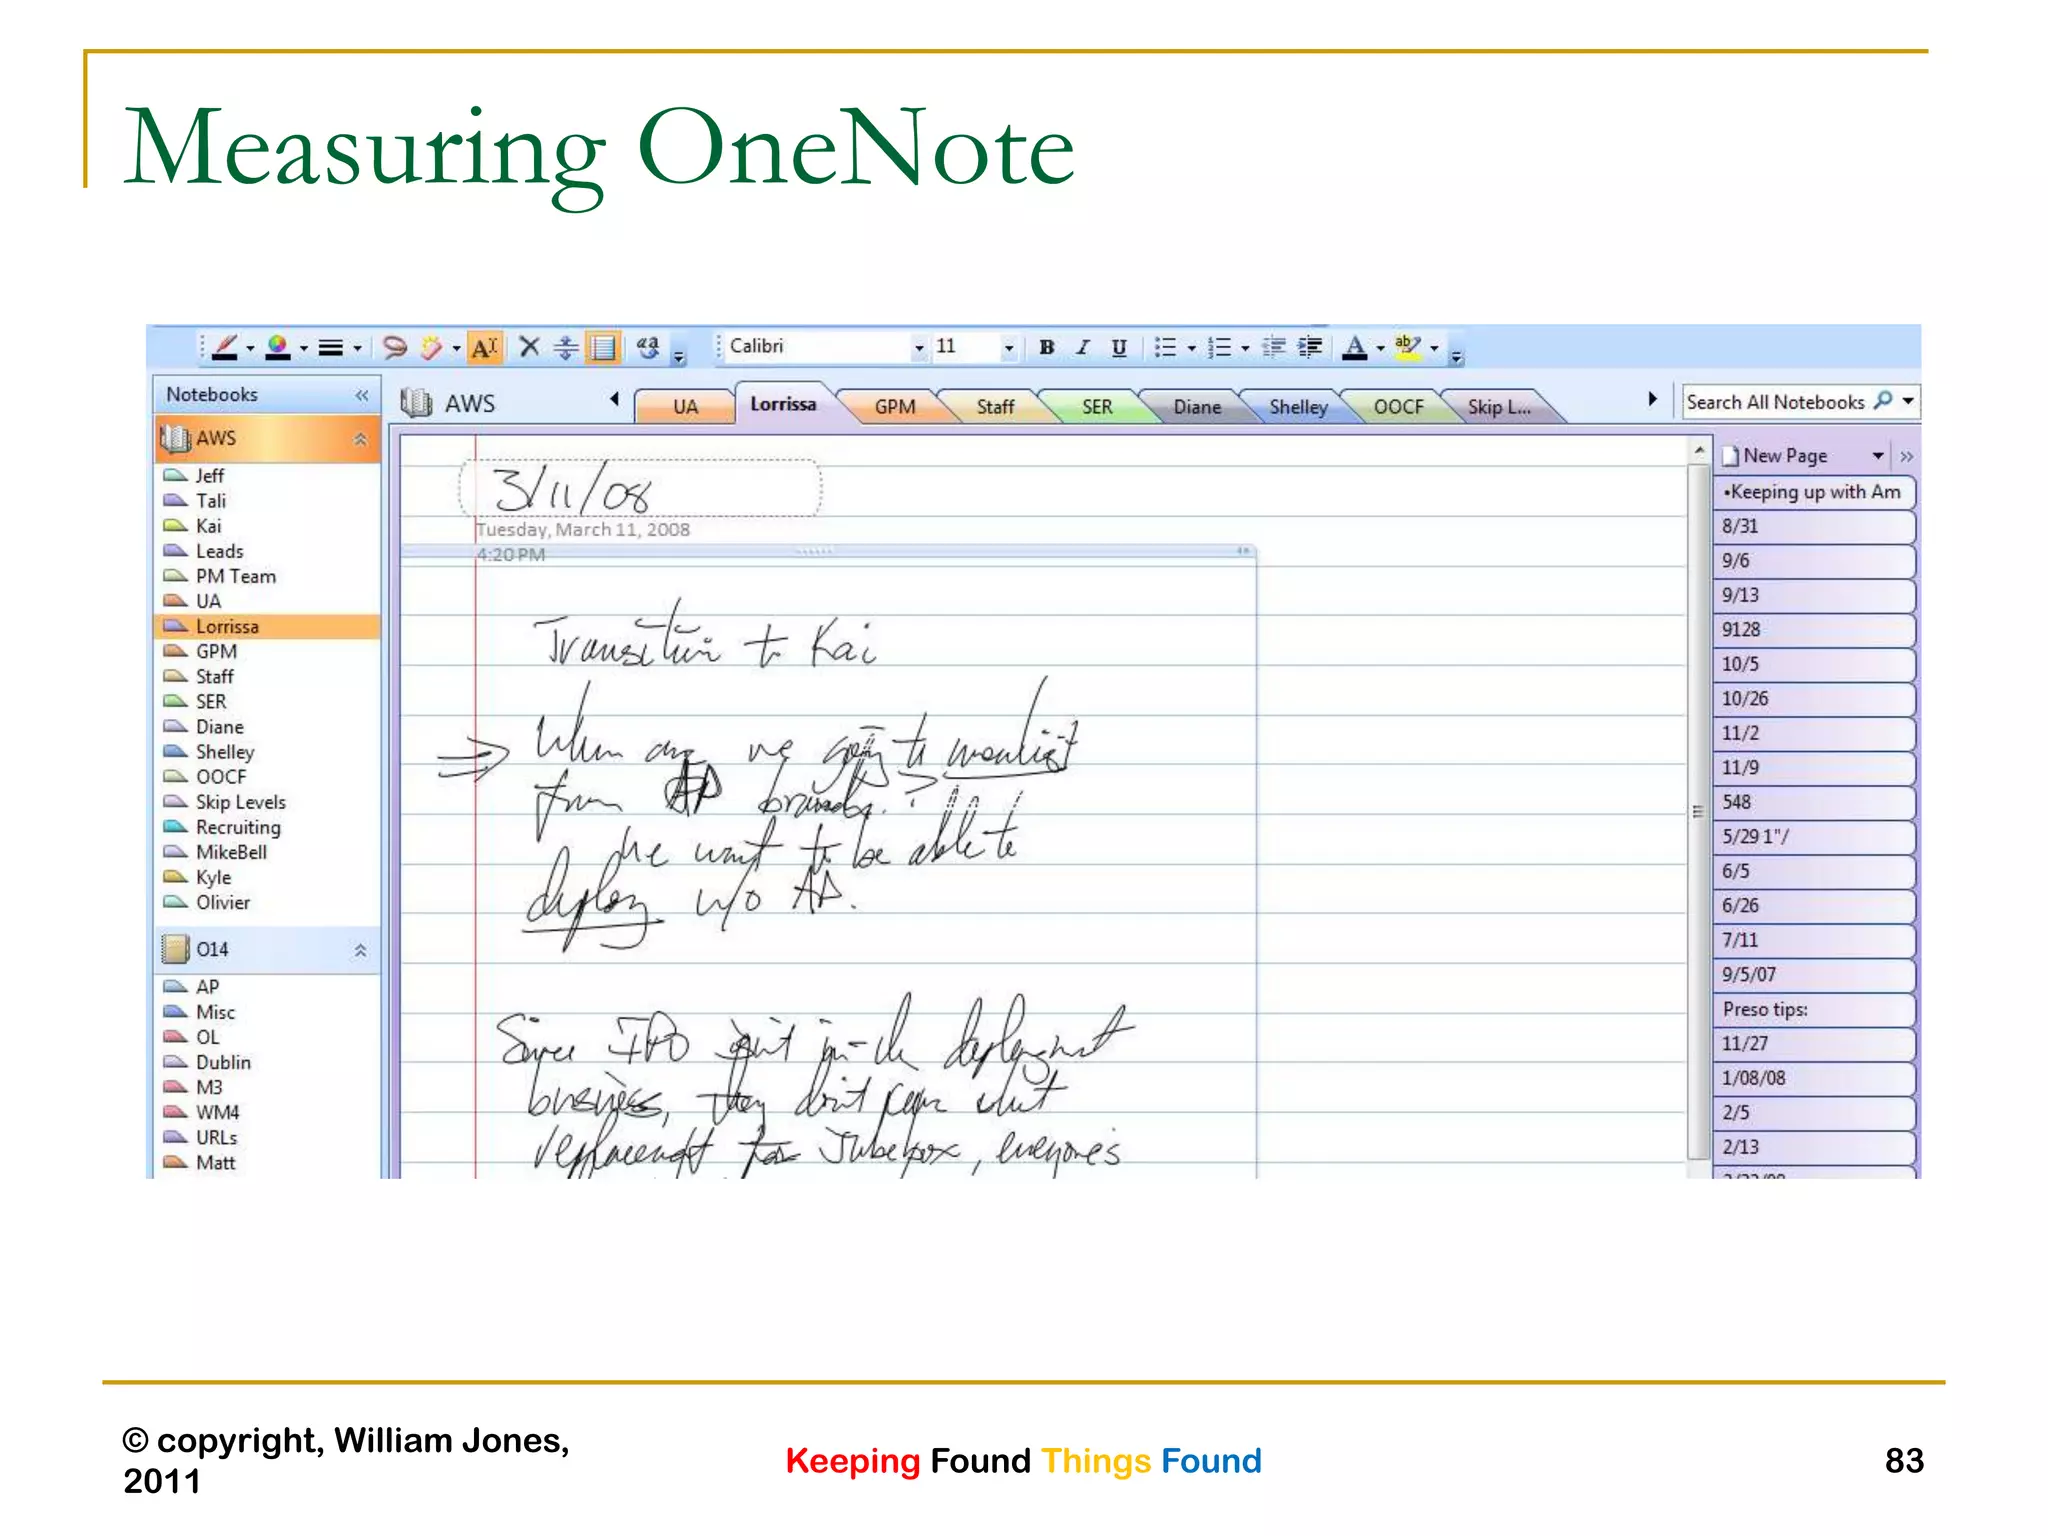 Measuring OneNote
Calibri
11
B I U
Notebooks
AWS
Jeff
Tali
Kai
Leads
PM Team
UA
Lorrissa
GPM
Staff
SER
Diane
Shelley
OOCF
Skip Levels
Recruiting
MikeBell
Kyle
Olivier
O14
AP
Misc
OL
Dublin
M3
WM4
URLs
Matt
AWS
UA Lorrissa GPM Staff SER Diane Shelley OOCF Skip L...
Search All Notebooks
3/11/08
Tuesday, March 11, 2008
4:20 PM
Transition to Kai
⇒ When are we going to
from AP
we want to be able to
deploy w/o AD.
Since IPO isn't in-the deployment
business, they don't know what
replacement for Jukebox, everyone's
New Page
•Keeping up with Am
8/31
9/6
9/13
9128
10/5
10/26
11/2
11/9
548
5/29 1"/
6/5
6/26
7/11
9/5/07
Preso tips:
11/27
1/08/08
2/5
2/13
© copyright, William Jones,
2011
Keeping Found Things Found
83